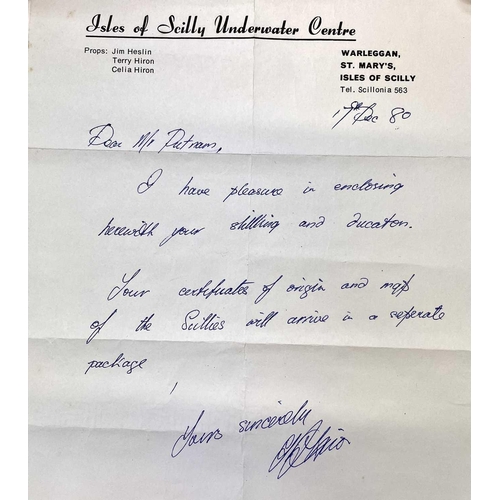 Isles of Scilly Underwater Centre
Props: Jim Heslin
Terry Hiron
Celia Hiron
WARLEGGAN,
ST. MARY'S,
ISLES OF SCILLY
Tel. Scillonia 563
Dec 80
Dear Mr Putnam,
I have pleasure in enclosing
herewith your shilling and ducaton.
Your certificates of origin and map
of the Scillies will arrive in a seperate
package
Yours sincerely